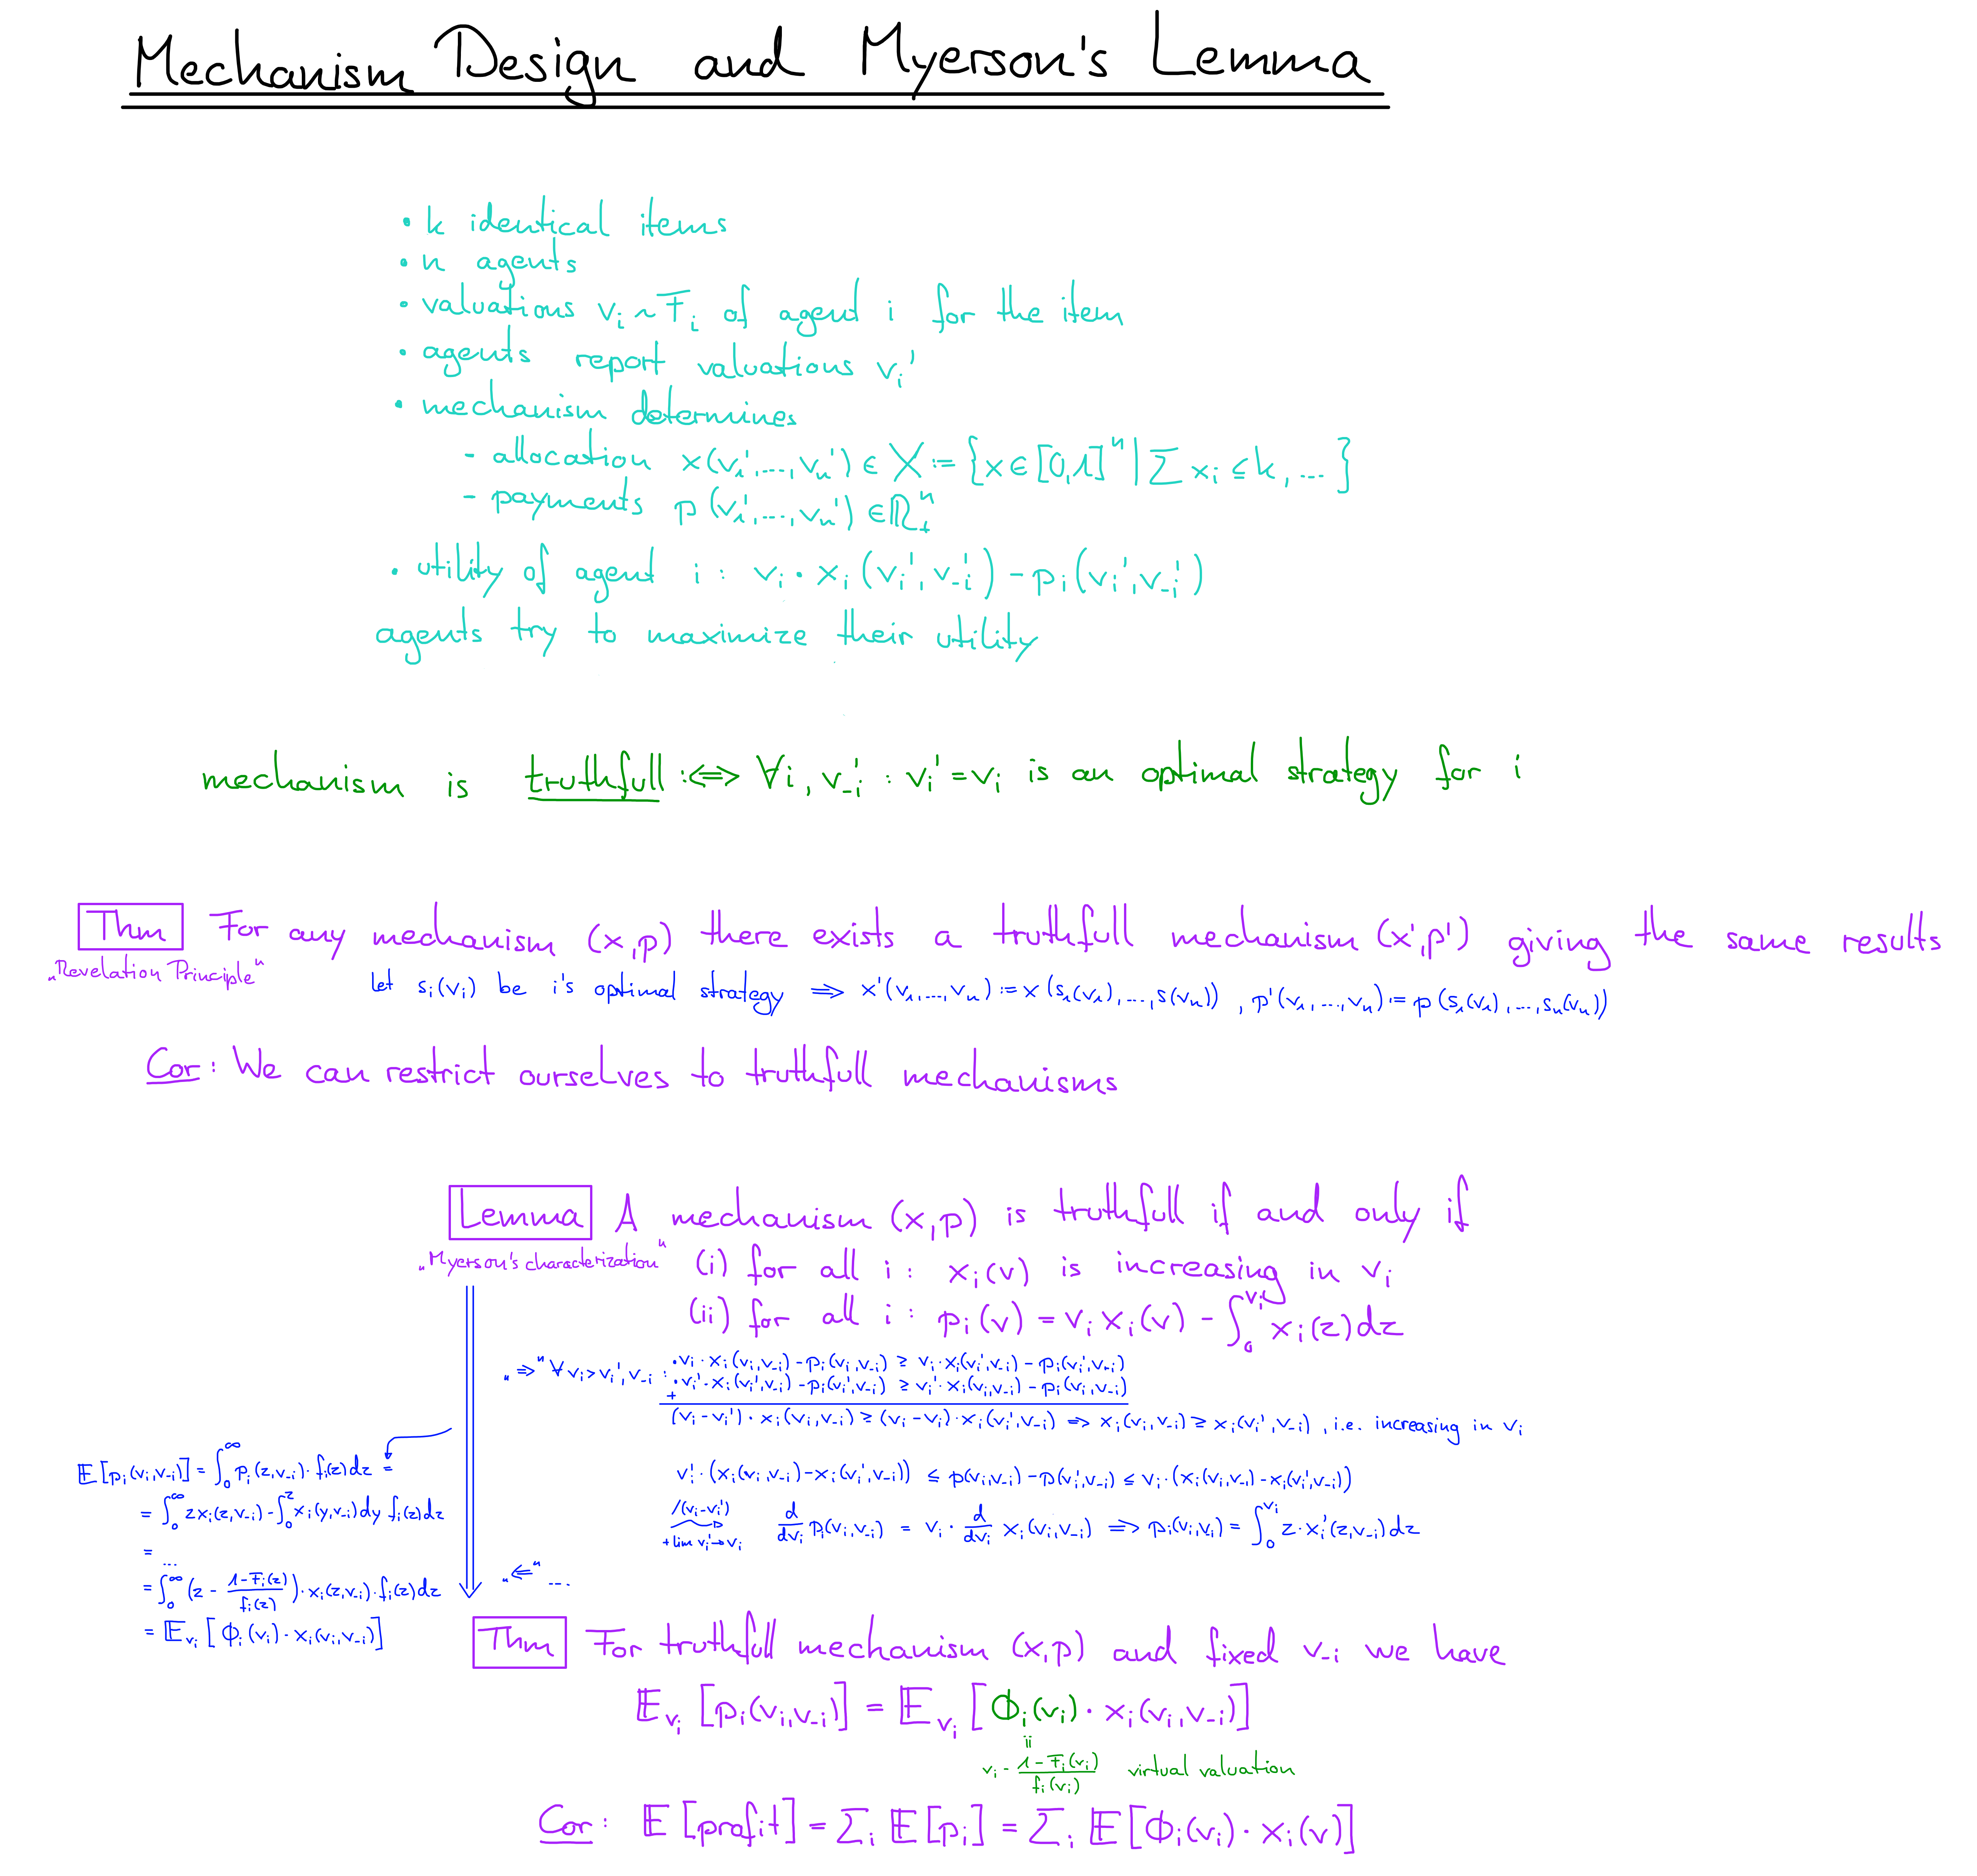 Mechanism Design and Myerson's Lemma
• k identical items
• n agents
• valuations vᵢ ~ Fᵢ of agent i for the item
• agents report valuations vᵢ'
• mechanism determines
- allocation x(v₁',...,vₙ') ∈ X := {x ∈ [0,1]ⁿ | ∑ xᵢ ≤ k, ...}
- payments p(v₁',...,vₙ') ∈ ℝ₊ⁿ
• utility of agent i : vᵢ · xᵢ(vᵢ', v₋ᵢ') - pᵢ(vᵢ', v₋ᵢ')
agents try to maximize their utility
mechanism is truthfull :⇔ ∀i, v₋ᵢ' : vᵢ' = vᵢ is an optimal strategy for i
Thm For any mechanism (x,p) there exists a truthfull mechanism (x',p') giving the same results
„Revelation Principle"
Let sᵢ(vᵢ) be i's optimal strategy ⇒ x'(v₁,...,vₙ) := x(s₁(v₁),...,s(vₙ)), p'(v₁,...,vₙ) := p(s₁(v₁),...,sₙ(vₙ))
Cor: We can restrict ourselves to truthfull mechanisms
Lemma A mechanism (x,p) is truthfull if and only if
„Myerson's characterization"
(i) for all i : xᵢ(v) is increasing in vᵢ
(ii) for all i : pᵢ(v) = vᵢ xᵢ(v) - ∫₀^{vᵢ} xᵢ(z)dz
„⇒" ∀ vᵢ > vᵢ', v₋ᵢ : • vᵢ · xᵢ(vᵢ,v₋ᵢ) - pᵢ(vᵢ,v₋ᵢ) ≥ vᵢ · xᵢ(vᵢ',v₋ᵢ) - pᵢ(vᵢ',v₋ᵢ)
+ • vᵢ' · xᵢ(vᵢ',v₋ᵢ) - pᵢ(vᵢ',v₋ᵢ) ≥ vᵢ' · xᵢ(vᵢ,v₋ᵢ) - pᵢ(vᵢ,v₋ᵢ)
(vᵢ - vᵢ') · xᵢ(vᵢ,v₋ᵢ) ≥ (vᵢ - vᵢ) · xᵢ(vᵢ',v₋ᵢ) ⇒ xᵢ(vᵢ,v₋ᵢ) ≥ xᵢ(vᵢ',v₋ᵢ), i.e. increasing in vᵢ
vᵢ' · (xᵢ(vᵢ,v₋ᵢ) - xᵢ(vᵢ',v₋ᵢ)) ≤ p(vᵢ,v₋ᵢ) - p(vᵢ',v₋ᵢ) ≤ vᵢ · (xᵢ(vᵢ,v₋ᵢ) - xᵢ(vᵢ',v₋ᵢ))
/(vᵢ-vᵢ') + lim vᵢ'→vᵢ d/dvᵢ pᵢ(vᵢ,v₋ᵢ) = vᵢ · d/dvᵢ xᵢ(vᵢ,v₋ᵢ) ⇒ pᵢ(vᵢ,vᵢ) = ∫₀^{vᵢ} z · xᵢ'(z,v₋ᵢ)dz
„⇐" ....
𝔼[pᵢ(vᵢ,v₋ᵢ)] = ∫₀^∞ pᵢ(z,v₋ᵢ) · fᵢ(z)dz =
= ∫₀^∞ z xᵢ(z,v₋ᵢ) - ∫₀^z xᵢ(y,v₋ᵢ)dy fᵢ(z)dz
= ...
= ∫₀^∞ (z - (1-Fᵢ(z))/fᵢ(z)) · xᵢ(z,v₋ᵢ) · fᵢ(z)dz
= 𝔼_{vᵢ} [ϕᵢ(vᵢ) · xᵢ(vᵢ,v₋ᵢ)]
Thm For truthfull mechanism (x,p) and fixed v₋ᵢ we have
𝔼_{vᵢ} [pᵢ(vᵢ,v₋ᵢ)] = 𝔼_{vᵢ} [ϕᵢ(vᵢ) · xᵢ(vᵢ,v₋ᵢ)]
vᵢ - (1-Fᵢ(vᵢ))/fᵢ(vᵢ) virtual valuation
Cor: 𝔼[profit] = ∑ᵢ 𝔼[pᵢ] = ∑ᵢ 𝔼[ϕᵢ(vᵢ) · xᵢ(v)]